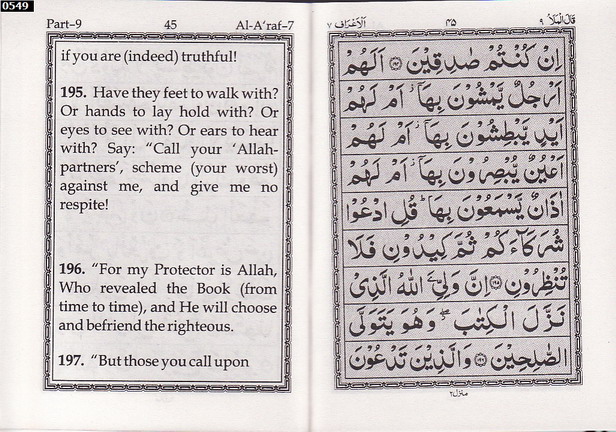 0549
Part-9 45 Al-A'raf-7
if you are (indeed) truthful!
195. Have they feet to walk with?
Or hands to lay hold with? Or
eyes to see with? Or ears to hear
with? Say: “Call your ‘Allah-
partners’, scheme (your worst)
against me, and give me no
respite!
196. “For my Protector is Allah,
Who revealed the Book (from
time to time), and He will choose
and befriend the righteous.
197. “But those you call upon
قَالَ الْمَلَاُ ٩ ٤٥ اَلْاَعْرَاف ٧
اِنْ كُنْتُمْ صٰدِقِيْنَ ۝١٩٤ اَلَهُمْ
اَرْجُلٌ يَّمْشُوْنَ بِهَآ ۡ اَمْ لَهُمْ
اَيْدٍ يَّبْطِشُوْنَ بِهَآ ۡ اَمْ لَهُمْ
اَعْيُنٌ يُّبْصِرُوْنَ بِهَآ ۡ اَمْ لَهُمْ
اٰذَانٌ يَّسْمَعُوْنَ بِهَا ؕ قُلِ ادْعُوْا
شُرَكَآءَكُمْ ثُمَّ كِيْدُوْنِ فَلَا
تُنْظِرُوْنِ ۝١٩٥ اِنَّ وَلِيِّ ےَ اللّٰهُ الَّذِيْ
نَزَّلَ الْكِتٰبَ ۖ وَهُوَ يَتَوَلَّى
الصّٰلِحِيْنَ ۝١٩٦ وَالَّذِيْنَ تَدْعُوْنَ
منزل ٢